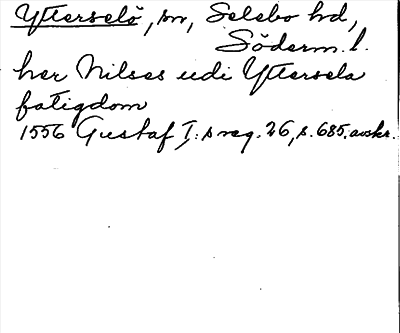 Ytterselö, sn, Selebo hd,
Söderm. l.
her Nilses udi Yttersela
fatigdom
1556 Gustaf I:s reg. 26, s. 685. avskr.